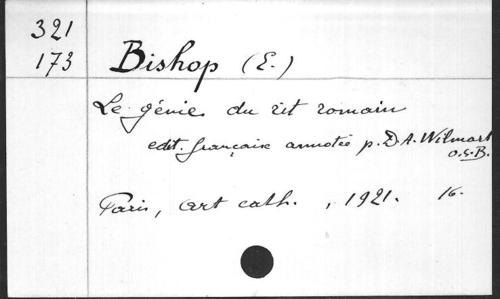 321
173
Bishop (E.)
Le génie du rit romain
edit. française annotée p. D. A. Wilmart
O.S.B.
Paris, art cath. , 1921. 16.